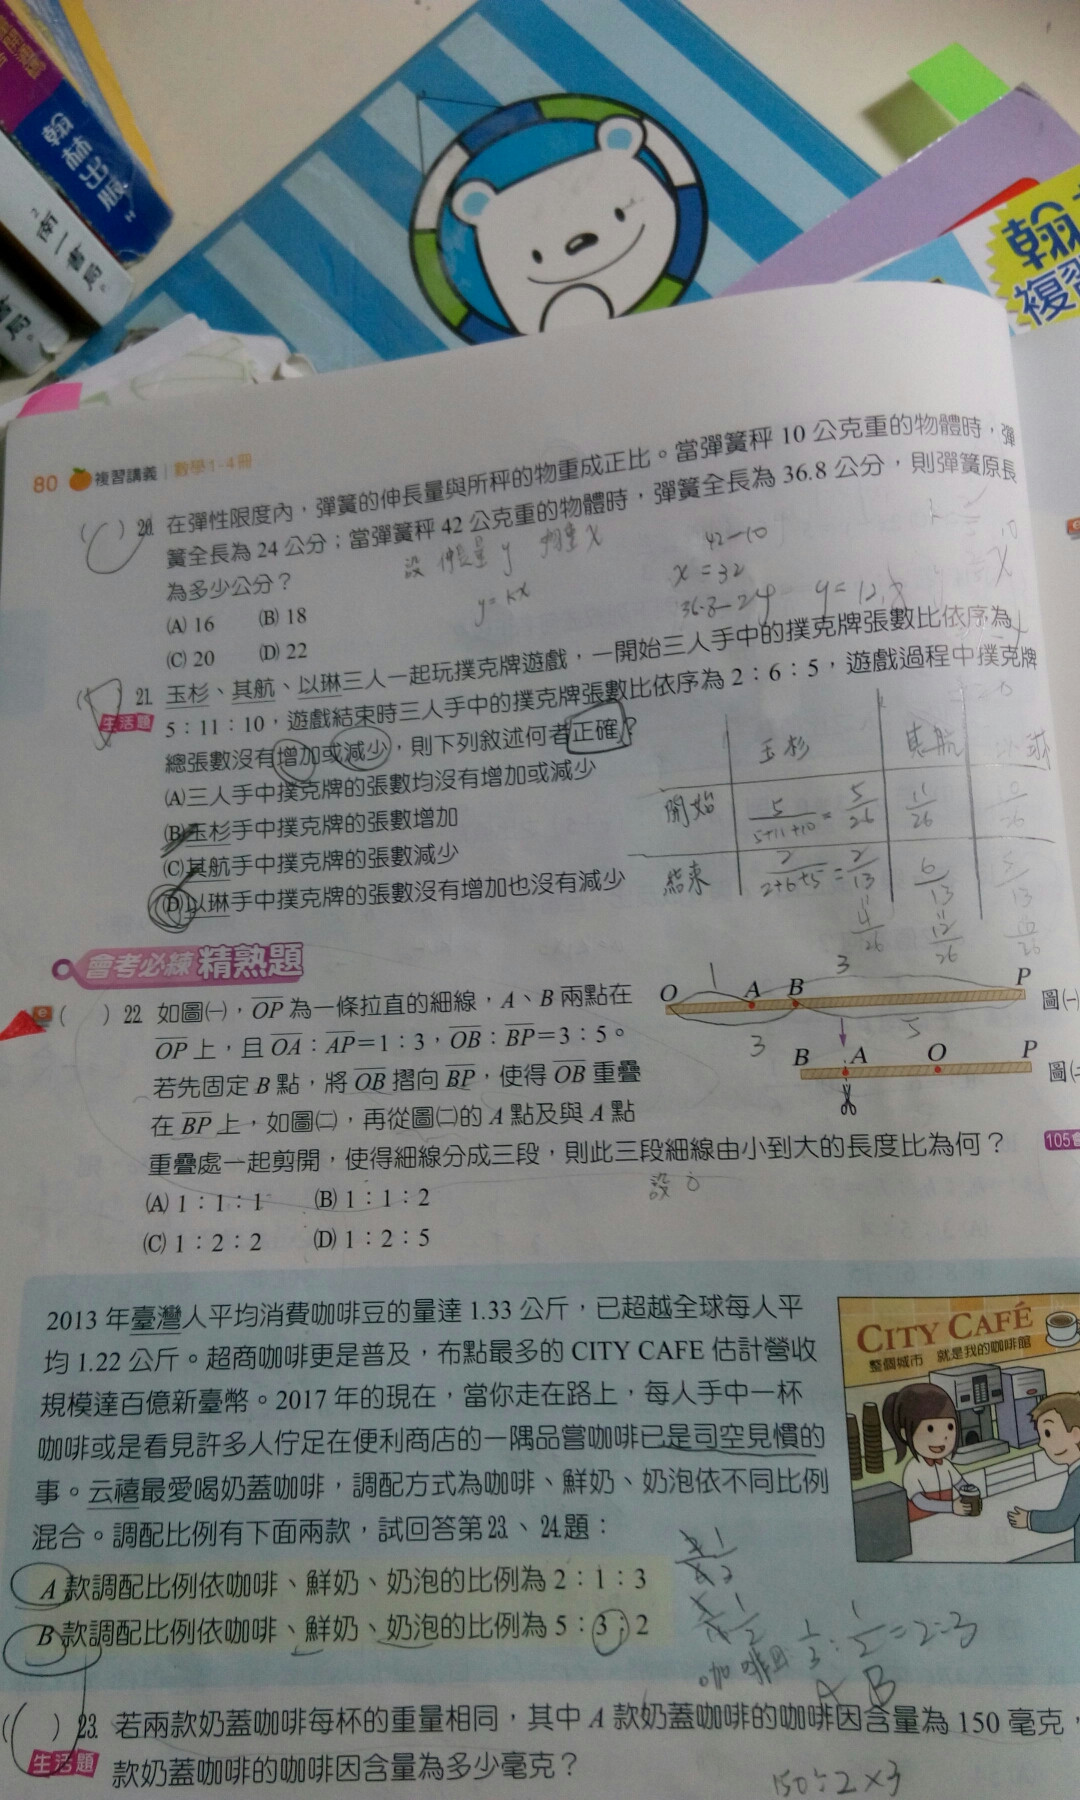 翰林出版
南一書局
書局
翰
複習
80 複習講義 數學1-4冊
( ) 20. 在彈性限度內，彈簧的伸長量與所秤的物重成正比。當彈簧秤 10 公克重的物體時，彈
簧全長為 24 公分；當彈簧秤 42 公克重的物體時，彈簧全長為 36.8 公分，則彈簧原長
為多少公分？
(A) 16 (B) 18
(C) 20 (D) 22
設 伸長量 y 物重 x
y=kx
42-10
x=32
36.8-24 y=12.8
( ) 21. 玉杉、其航、以琳三人一起玩撲克牌遊戲，一開始三人手中的撲克牌張數比依序為
生活題 5：11：10，遊戲結束時三人手中的撲克牌張數比依序為 2：6：5，遊戲過程中撲克牌
總張數沒有增加或減少，則下列敘述何者正確？
(A)三人手中撲克牌的張數均沒有增加或減少
(B)玉杉手中撲克牌的張數增加
(C)其航手中撲克牌的張數減少
(D)以琳手中撲克牌的張數沒有增加也沒有減少
玉杉 其航 琳
開始 5/5+11+10 = 5/26 11/26
結束 2/2+6+5 = 2/13 6/13 5/13
4/26 12/26 10/26
會考必練 精熟題
( ) 22. 如圖㈠，OP 為一條拉直的細線，A、B 兩點在
OP 上，且 OA：AP=1：3，OB：BP=3：5。
若先固定 B 點，將 OB 摺向 BP，使得 OB 重疊
在 BP 上，如圖㈡，再從圖㈡的 A 點及與 A 點
重疊處一起剪開，使得細線分成三段，則此三段細線由小到大的長度比為何？
105
(A) 1：1：1 (B) 1：1：2
(C) 1：2：2 (D) 1：2：5
1 3
O A B P 圖㈠
3 5
B A O P 圖
設
2013 年臺灣人平均消費咖啡豆的量達 1.33 公斤，已超越全球每人平
均 1.22 公斤。超商咖啡更是普及，布點最多的 CITY CAFE 估計營收
規模達百億新臺幣。2017 年的現在，當你走在路上，每人手中一杯
咖啡或是看見許多人佇足在便利商店的一隅品嘗咖啡已是司空見慣的
事。云禧最愛喝奶蓋咖啡，調配方式為咖啡、鮮奶、奶泡依不同比例
混合。調配比例有下面兩款，試回答第 23.、24.題：
CITY CAFÉ
整個城市 就是我的咖啡館
A 款調配比例依咖啡、鮮奶、奶泡的比例為 2：1：3
B 款調配比例依咖啡、鮮奶、奶泡的比例為 5：3：2
咖啡因 1/3:1/2=2:3
A B
( ) 23. 若兩款奶蓋咖啡每杯的重量相同，其中 A 款奶蓋咖啡的咖啡因含量為 150 毫克，
生活題 款奶蓋咖啡的咖啡因含量為多少毫克？
150÷2×3